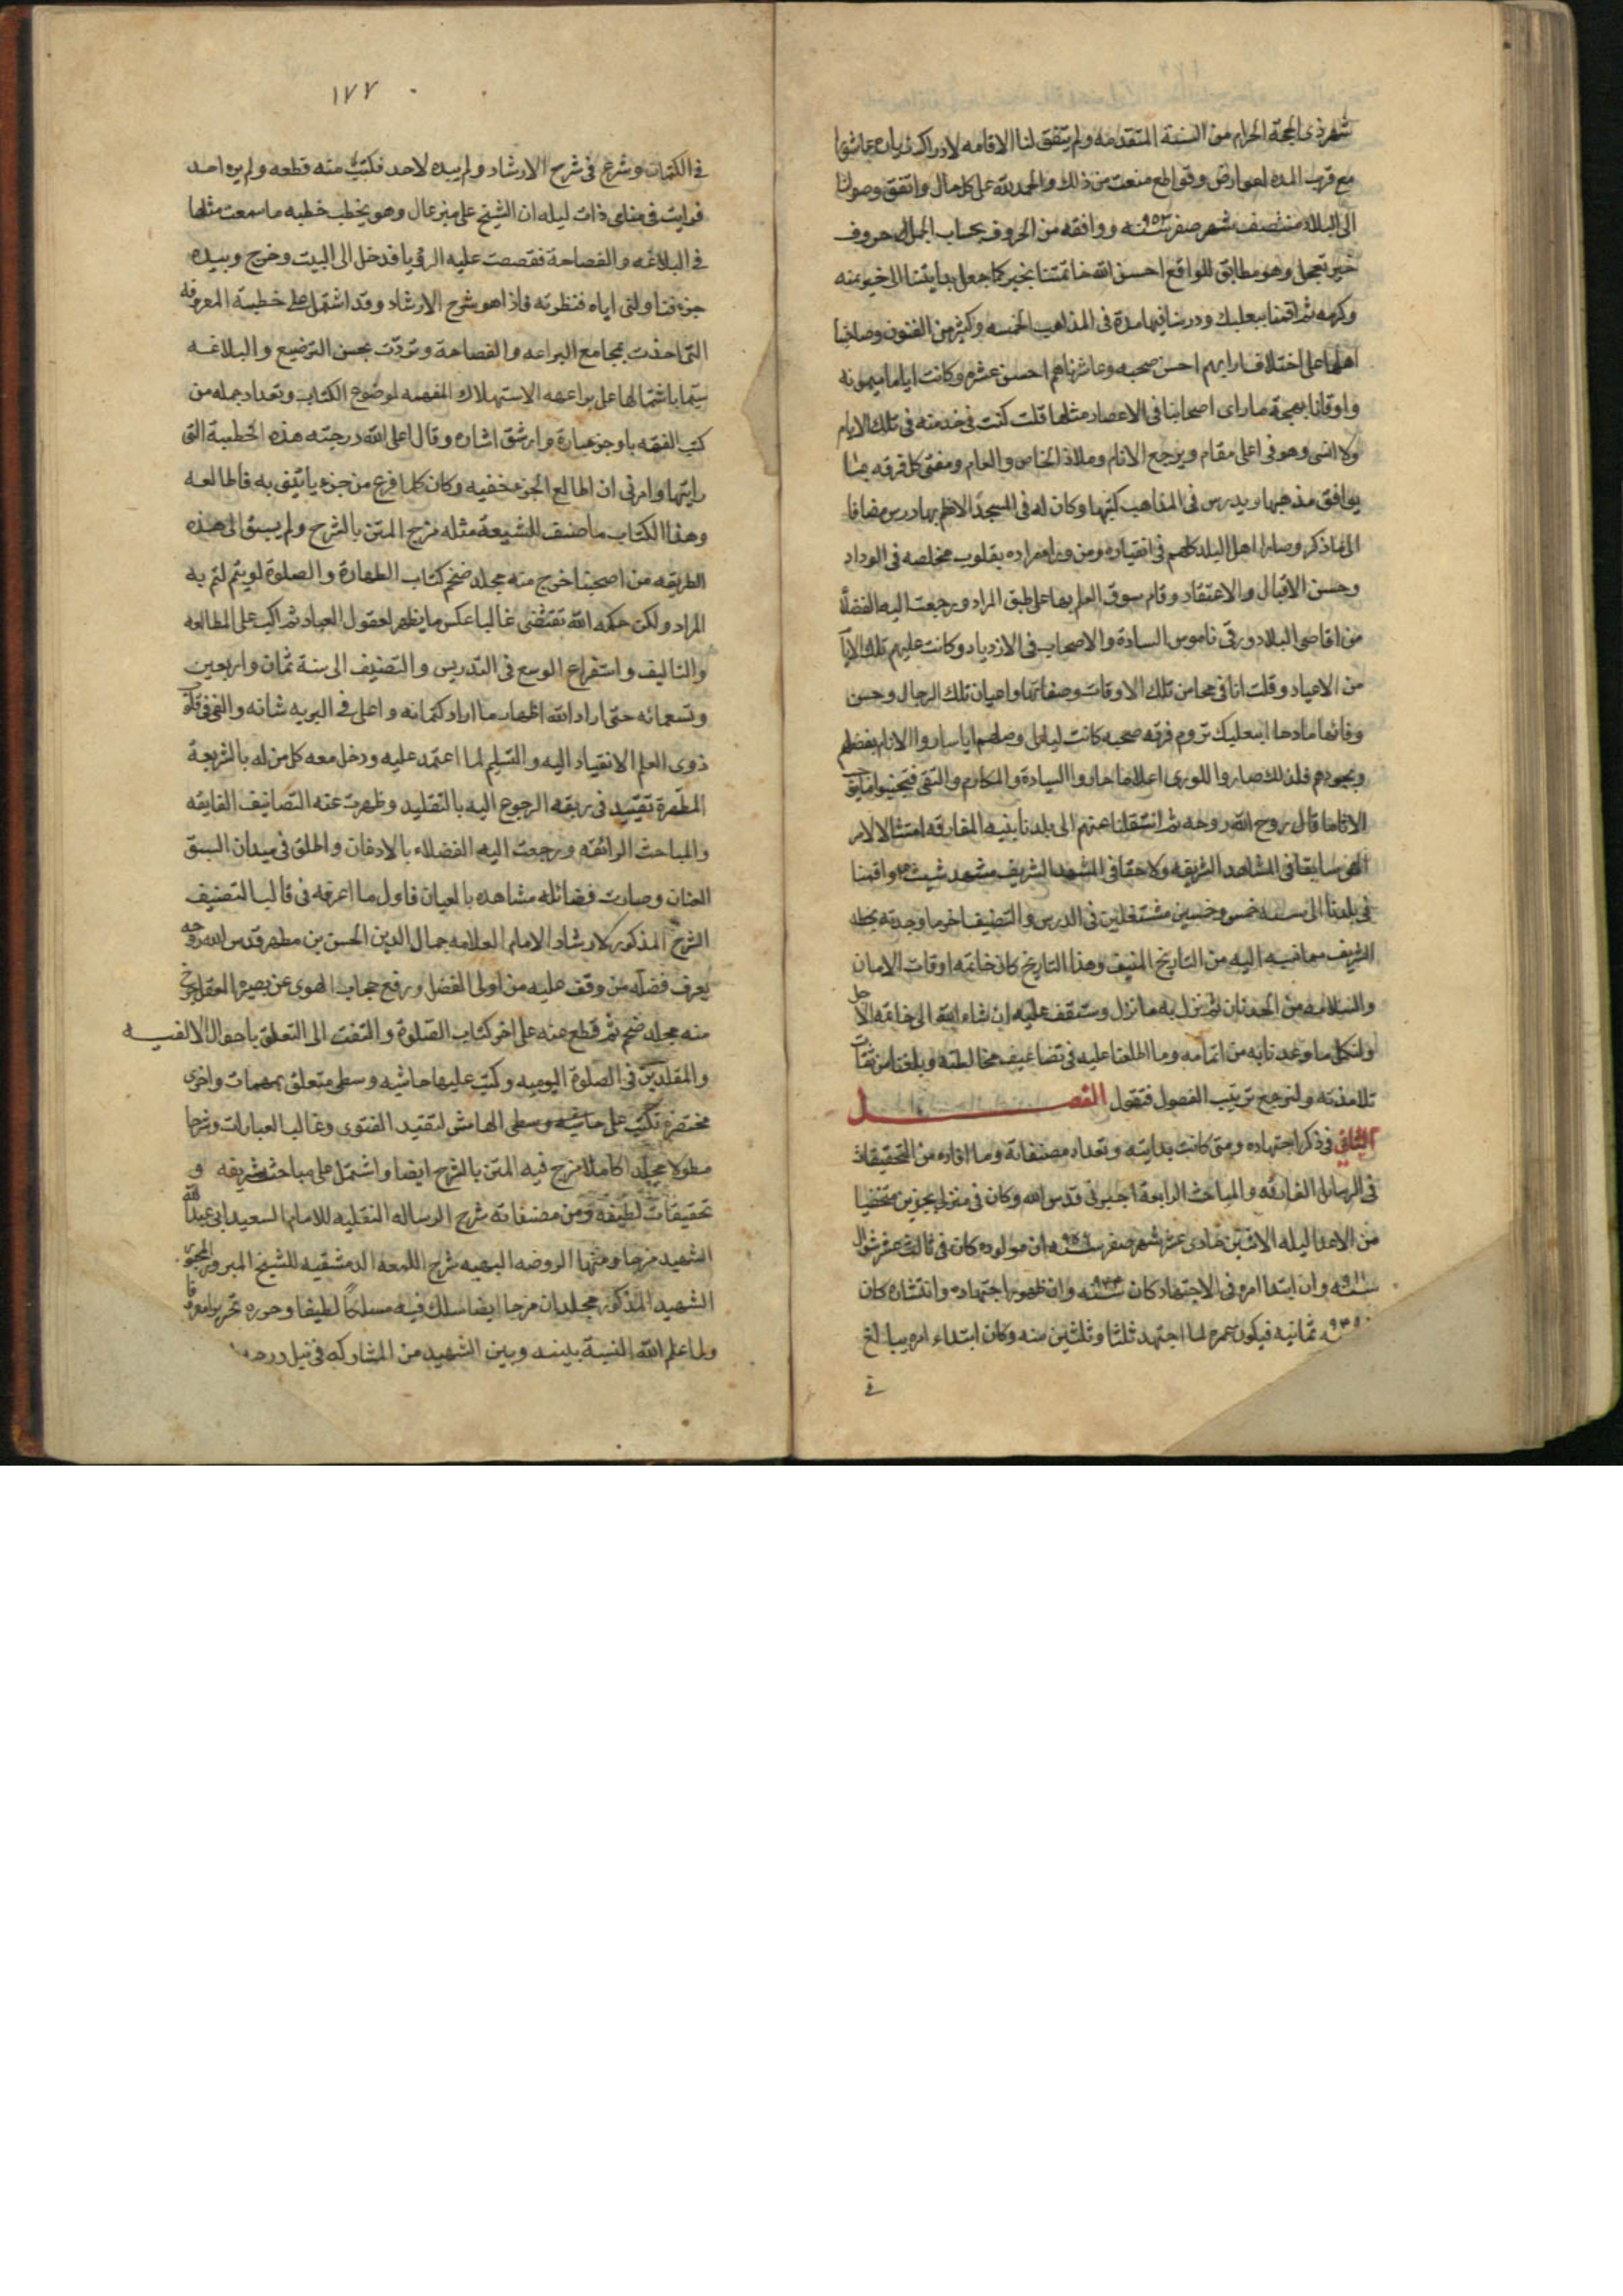 شهر ذى الحجة الحرام من السنة المتقدمه ولم يتفق لنا الاقامه لادراك زيارة عاشورا
مع قرب المدة لعوارض وقواطع منعت من ذلك والحمد لله على كل حال واتفق وصولنا
الى البلاد منتصف شهر صفر سنه ٩٥٣ ووافقه من الحروف بحساب الجمل حروف
خير تعجل وهو مطابق للواقع احسن الله خاتمتنا بخير كما جعل بدايتنا الى خير بمنه
وكرمه ثم اقمنا ببعلبك ودرسنا فيها مدة فى المذاهب الخمسه وكثير من الفنون وصاحبنا
اهلها على اختلاف ارايهم احسن صحبه وعاشرناهم احسن عشره وكانت اياما ميمونه
واوقاتا بهجة ما راى اصحابنا فى الاعصار مثلها قلت كنت فى خدمته فى تلك الايام
ولا انسى وهو فى اعلى مقام ومرجع الانام وملاذ الخاص والعام ومفتى كل فرقه بما
يوافق مذهبها ويدرس فى المذاهب كتبها وكان له فى المسجد الاعظم بها درس مضافا
الى ما ذكر وصار اهل البلد كلهم فى انقياده ومن وراء مراده بقلوب مخلصه فى الوداد
وحسن الاقبال والاعتقاد وقام سوق العلم بها على طبق المراد ورجعت اليه الفضلاء
من اقاصى البلاد ورقى ناموس السادة والاصحاب فى الازدياد وكانت عليهم تلك الايام
من الاعياد وقلت انا فى محاسن تلك الاوقات وصفاتها واعيان تلك الرجال وحسن
وفائها مادحا
وبجودهم فلذلك صاروا للورى اعلاما حازوا السيادة والمكارم والتقى فتجنبوا
الاثاما قال روح الله روحه ثم انتقلنا عنهم الى بلدنا بنيه المفارقه امتثالا لامر
الهى سابقا فى المشاهد الشريفه ولاحقا فى المشهد الشريف مشهد شيث ع واقمنا
فى بلدنا الى سنه خمس وخمسين مشتغلين فى الدرس والتصنيف اخر ما وجدته بخطه
الشريف مما نسبه اليه من التاريخ المنيف وهذا التاريخ كان خاتمه اوقات الامان
والسلامه من الحدثان ثم نزل به ما نزل وستقف عليه ان شاء الله الى خاتمه الاجل
ولنكمل ما وعدنا به من اتمامه وما اطلعنا عليه فى تضاعيف مخالطته وبلغنا من ثقات
تلامذته ولنرجع ترتيب الفصول فنقول الفصـــل
الثانى فى ذكر اجتهاده ومتى كانت بدايته وتعداد مصنفاته وما افاده من التحقيقات
فى الرسائل الفارقه والمباحث الرايعة اخبرنى قدس الله وكان فى منزلى بجزين متخفيا
من الاعدا ليلة الاثنين حادى عشر شهر صفر سنه ٩٥٦ ان مولوده كان فى ثالث عشر شوال
سنه ٩١١ وان ابتدا امره فى الاجتهاد كان سنه ٩٤٤ وان ظهور اجتهاده وانتشاره كان
ثمانيه فيكون عمره لما اجتهد ثلثا وثلثين سنه وكان ابتداء امره يبالغ
فى
١٧٧
فى الكتمان وشرع فى شرح الارشاد ولم يبده لاحد فكتب منه قطعه ولم يره احد
فرايت فى منامى ذات ليله ان الشيخ على منبر عال وهو يخطب خطبه ما سمعت مثلها
فى البلاغه والفصاحة فقصصت عليه الرؤيا فدخل الى البيت وخرج وبيده
جزء فناولنى اياه فنظرته فاذا هو شرح الارشاد وقد اشتمل على خطبة المعروفه
التى اخذت بمجامع البراعه والفصاحة وتردت بحسن الترصيع والبلاغه
سيما باشتمالها على براعهه الاستهلاك المفهمه لموضوع الكتاب وتعداد جمله من
كتب الفقه باوجز عبارة وارشق اشاره وقال اعلى الله درجته هذه الخطبة التى
رايتها وامرنى ان اطالع الجزء خفيه وكان كلما فرغ من جزء ياتينى به فاطالعه
وهذا الكتاب ما صنف للشيعة مثله مزج المتن بالشرح ولم يسبق الى هذه
الطريقه من اصحبنا اخرج منه مجلد ضخم كتاب الطهارة والصلوة لو يتم لتم به
المراد ولكن حكمه الله تقتضى غالبا عكس ما يظهر لعقول العباد ثم اكب على المطالعه
والتاليف واستفراغ الوسع فى التدريس والتصنيف الى سنة ثمان واربعين
وتسعمائه حتى اراد الله اظهار ما اراد كتمانه واعلى فى البريه شانه والقى فى قلوب
ذوى العلم الانقياد اليه والتسليم لما اعتمد عليه ودخل معه كل من له بالشريعة
المطهرة تقيد فى ربقه الرجوع اليه بالتقليد وظهرت عنه التصانيف الفايقه
والمباحث الرائقه ورجعت اليه الفضلاء بالاذعان واطلق فى ميدان السبق
العنان وصارت فضائله مشاهده بالعيان فاول ما اعرفه فى قالب التصنيف
الشرح المذكور لارشاد الامام العلامه جمال الدين الحسن بن مطهر قدس الله روحه
يعرف فضله من وقف عليه من اولى الفضل ورفع حجاب الهوى عن بصيره العقل خرج
منه مجلد ضخم ثم قطع عنه على اخر كتاب الصلوة والتفت الى التعلق باحوال الالفيـــه
والمقلدين فى الصلوة اليوميه وكتب عليها حاشيه وسطى متعلق بمهمات واخرى
مختصرة تكتب على الهامش لتقييد الفتوى وغالب العبارات وشرحا
مطولا مجلدا كاملا مزج فيه المتن بالشرح ايضا واشتمل على مباحث شريفه و
تحقيقات لطيفه ومن مصنفاته شرح الرساله النفليه للامام السعيد ابى عبد الله
الشهيد مزجا ومنها الروضه البهيه شرح اللمعه الدمشقيه للشيخ المبرور المحقق
الشهيد المذكور مجلدان مزجا ايضا سلك فيه مسلكا لطيفا وحرره تحريرا معروفا
ولما علم الله النسبة بينه وبين الشهيد من المشاركه فى نيل درجه